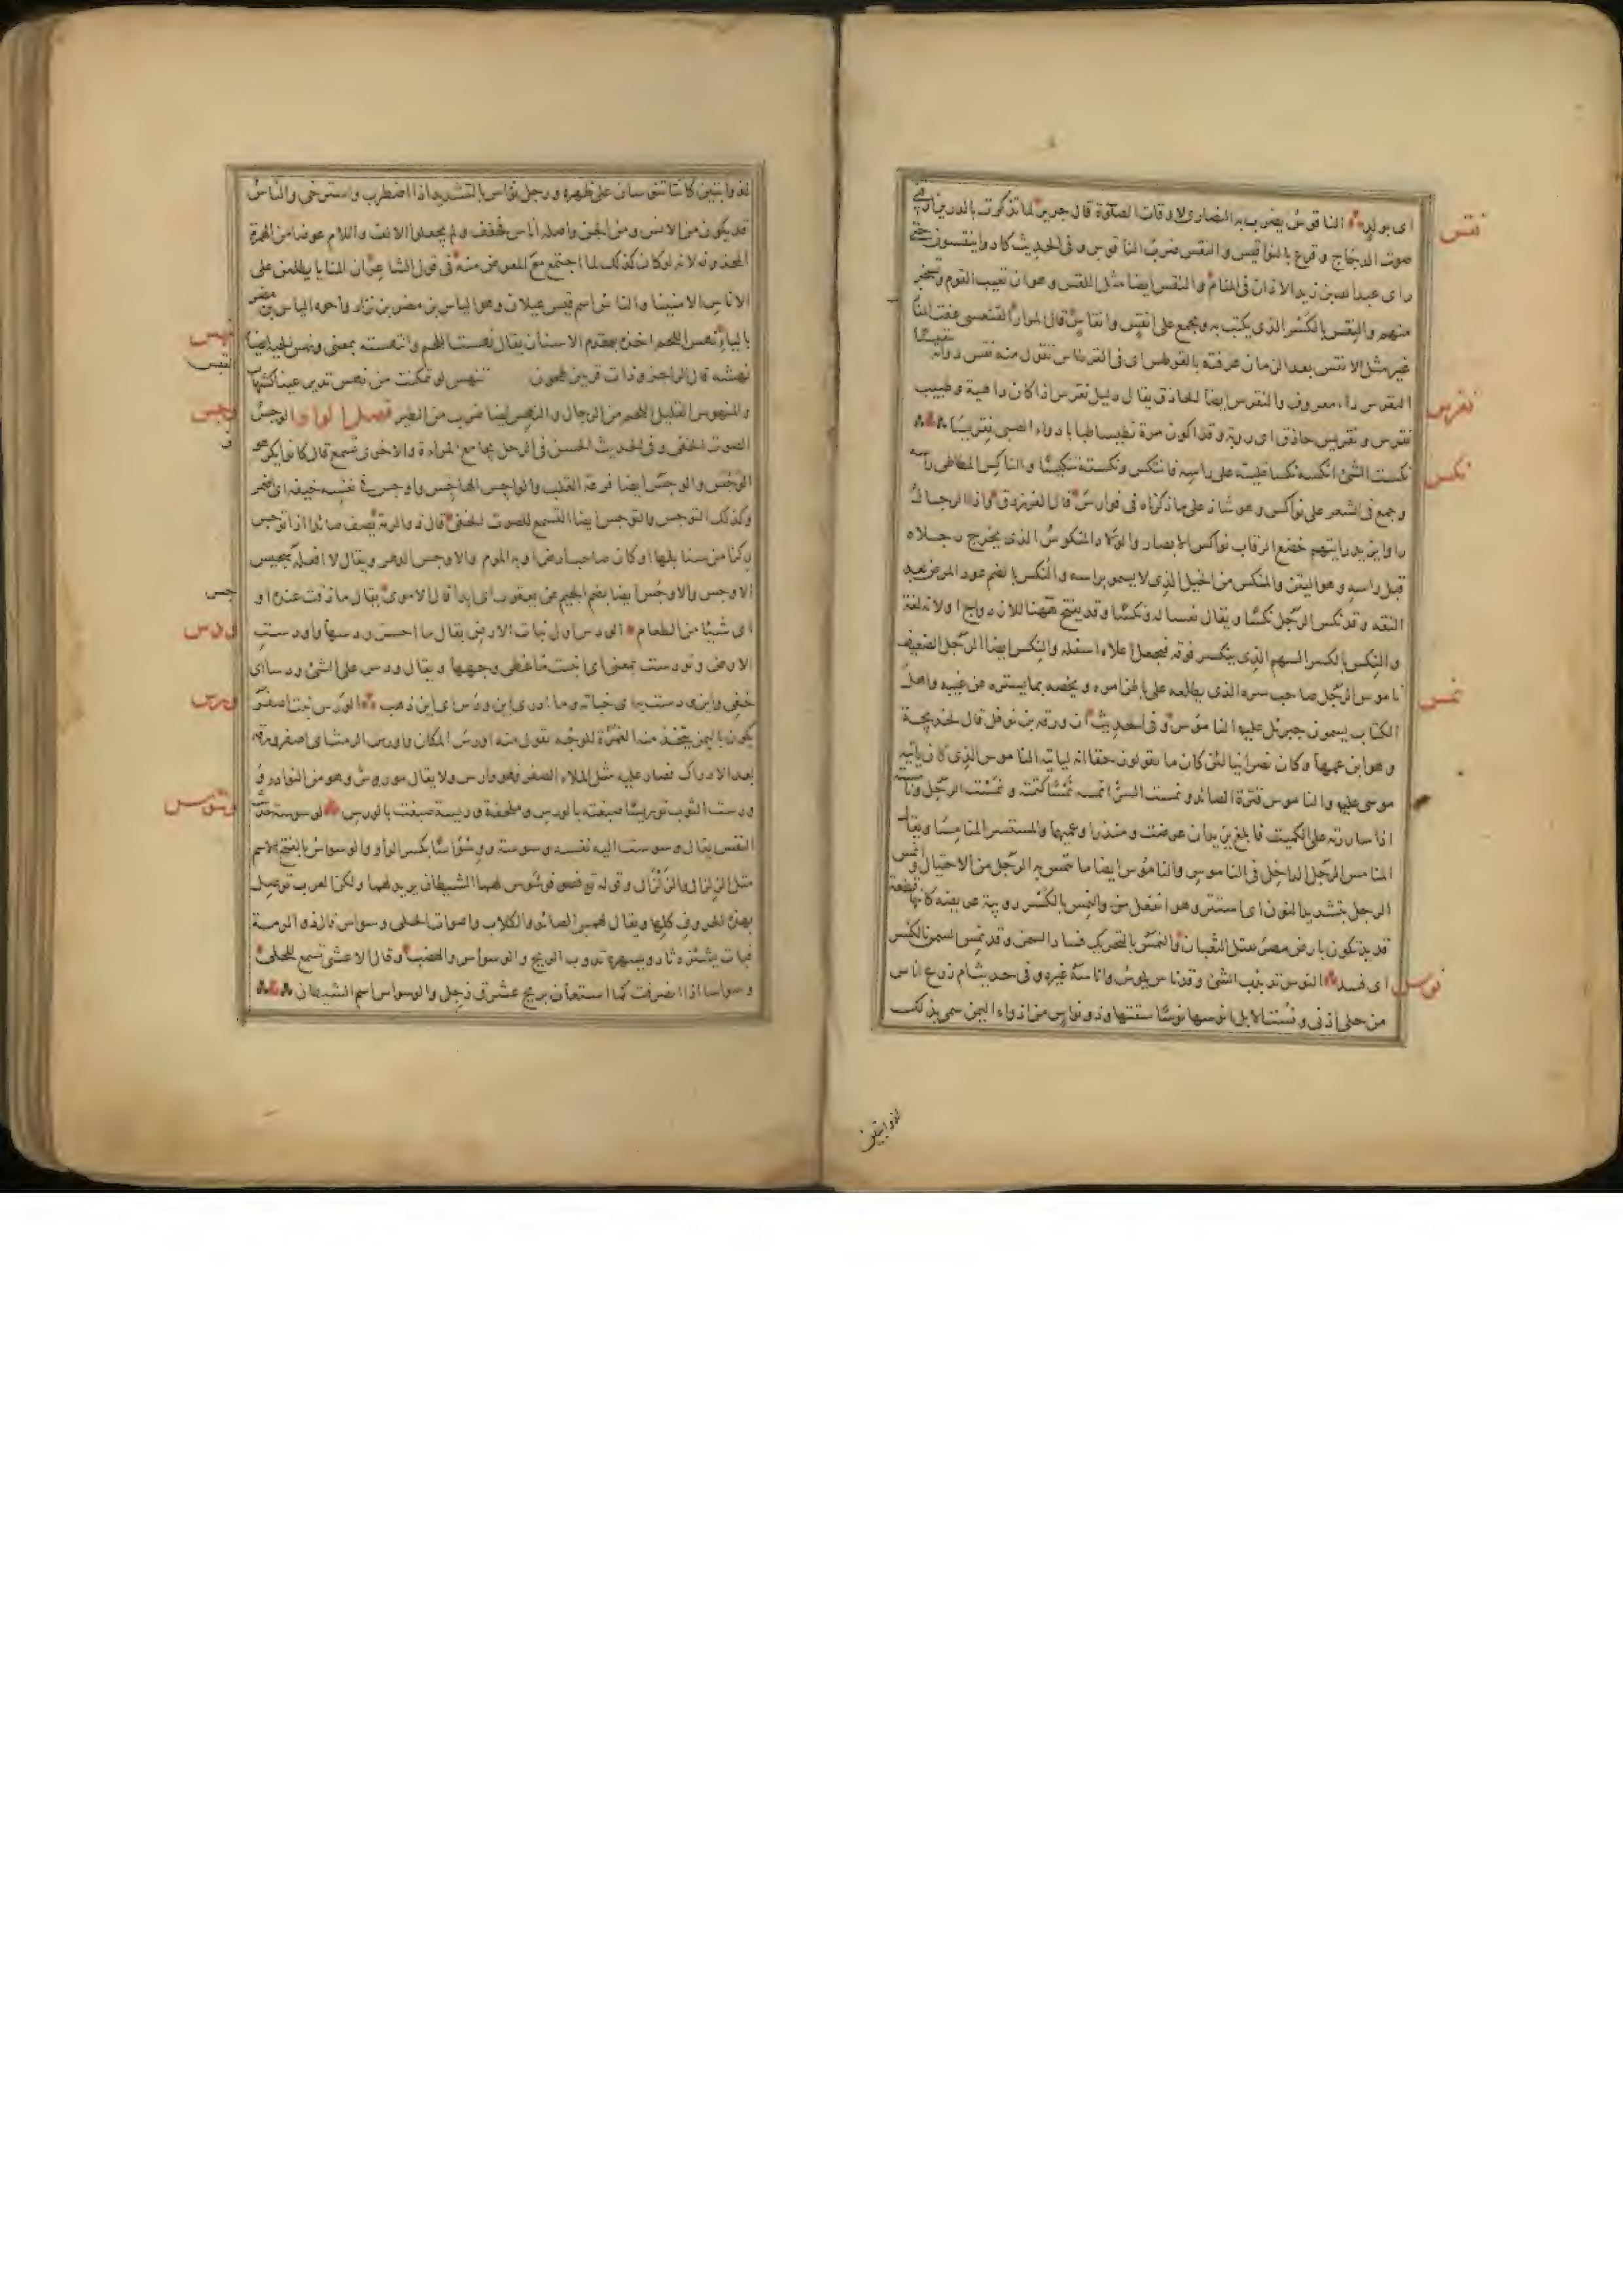 نقس
اى بولهِ الناقوسُ يضرب به النصارى لاوقات الصلوة قال جرير لما تذكرت بالديرين ارقنى
صوت الدجاج وقرع بالنواقيس والنقس ضرب الناقوس وفى الحديث كادوا ينقسون حتى
راى عبدالله بن زيد الاذان فى المنام والنقس ايضا مثل اللقس وهو ان تعيب القوم وتسخر
منهم والنقس بالكسر الذى يكتب به ويجمع على انقس وانقاس قال المرار الفقعسى عفت المنازل
غير مثل الانقس بعد الزمان عرفته بالقرطس اى فى القرطاس تقول منه نقس دواته تنقيسا
نقرس
النقرس داء معروف والنقرس ايضا الحاذق يقال دليل نقرس اذا كان داهية وطبيب
نقرس ونقريس حاذق وقد اكون مرة نطيسا طبا بادواء الصبى نقريسا
نكس
نكست الشئ انكسه نكسا قلبته على راسه فانتكس ونكسته تنكيسا والناكس المطاطى راسه
وجمع فى الشعر على نواكس وهو شاذ على ما ذكرناه فى فوارس قال الفرزدق واذا الرجال
راوا يزيد رايتهم خضع الرقاب نواكس الابصار والولاد المنكوس الذى يخرج رجلاه
قبل راسه وهو اليتن والمنكس من الخيل الذى لا يسمو براسه والنكس بالضم عود المرض بعد
النقه وقد نكس الرجل نكسا ويقال تعسا له ونكسا وقد يفتح ههنا للازدواج او لانه لغة
والنكس بالكسر السهم الذى ينكسر فوقه فيجعل اعلاه اسفله والنكس ايضا الرجل الضعيف
نمس
ناموس الرجل صاحب سره الذى يطلعه على باطن امره ويخصه بما يستره عن غيره واهل
الكتاب يسمون جبرئل عليه الناموس وفى الحديث ان ورقة بن نوفل قال لخديجة
وهو ابن عمها وكان نصرانيا لئن كان ما تقولون حقا انه لياتيه الناموس الذى كان ياتيه
موسى عليه والناموس قترة الصائد ونمست السر انمسه نمسا كتمته ونمست الرجل ونامسته
اذا ساررته قال الكميت فابلغ يزيد ان عرضت ومنذرا وعميهما والمستسر المنامسا ويقال
المنامس الرجل الداخل فى الناموس والناموس ايضا ما تنمس به الرجل من الاحتيال وانمس
الرجل بتشديد النون اى استتر وهو انفعل منه والنمس بالكسر دويبة عريضة كانها قطعة
قديد تكون بارض مصر تقتل الثعبان والنمس بالتحريك فساد السمن وقد نمس السمن بالكسر
نوس
اى فسد النوس تذبذب الشئ وقد ناس ينوس واناسه غيره وفى حديث ام زرع اناس
من حلى اذنى ونست الابل انوسها نوسا سقتها وذو نواس من اذواء اليمن سمى بذلك
لذوابتين
لذوابتين كانتا تنوسان على ظهره ورجل نواس بالتشديد اذا اضطرب واسترخى والناس
قد يكون من الانس ومن الجن واصله اناس فخفف ولم يجعلوا الالف واللام عوضا من الهمزة
المحذوفه لانه لو كان كذلك لما اجتمع مع المعوض منه فى قول الشاعر ان المنايا يطلعن على
الاناس الامنينا والناس اسم قيس عيلان وهو الياس بن مضر بن نزار واخوه الياس بن مضر
نهس
بالياء نهس اللحم اخذه بمقدم الاسنان يقال نهست اللحم وانتهسته بمعنى ونهس الحية ايضا
نهشه قال الراجز وذات قرنين طحون تنهس لو تمكنت من نهس تدير عينا كشهاب
القبس
وجس
والمنهوس القليل اللحم من الرجال والنهس ايضا ضرب من الطير فصل الواو الوجس
الصوت الخفى وفى الحديث الحسن فى الرجل يجامع المراءة والاخرى تسمع قال كانوا يكرهون
الوجس والوجس ايضا فزعة القلب والواجس الهاجس واوجس فى نفسه خيفة اى اضمر
وكذلك التوجس والتوجس ايضا التسمع للصوت الخفى قال ذو الرمة يصف صائدا اذا توجس
ركزا من سنابكها او كان صاحب ارض او به الموم والاوجس الدهر ويقال لا افعله سجيس
الاوجس والاوجس ايضا بضم الجيم عن يعقوب اى ابدا قال الاموى يقال ما ذقت عنده او
جس
ودس
اى شيئا من الطعام الودس اول نبات الارض يقال ما احسن ودسها واودست
الارض وتودست بمعنى اى انبتت ما غطى وجهها ويقال ودس على الشئ ودسا اى
ورس
خفى واين ودست به اى خباته وما ادرى اين ودس اى اين ذهب الورس نبت اصفر
يكون باليمن يتخذ منه الغمرة للوجه تقول منه اورس المكان واورس الرمث اى اصفر ورقه
بعد الادراك فصار عليه مثل الملاء الصفر فهو وارس ولا يقال مورس وهو من النوادر و
وسوس
ورست الثوب توريسا صبغته بالورس وملحفة وريسة صبغت بالورس الوسوسة حديث
النفس يقال وسوست اليه نفسه وسوسة ووسواسا بكسر الواو والوسواس بالفتح الاسم
مثل الزلزال والزلزال وقوله تع فوسوس لهما الشيطان يريد اليهما ولكن العرب توصل
بهذه الحروف كلها ويقال لهمس الصائد والكلاب واصوات الحلى وسواس قال ذو الرمة
فبات يشئزه ثاد ويسهره تذوب الريح والوسواس والهضب وقال الاعشى تسمع للحلى
وسواسا اذا انصرفت كما استعان بريح عشرق زجل والوسواس اسم الشيطان